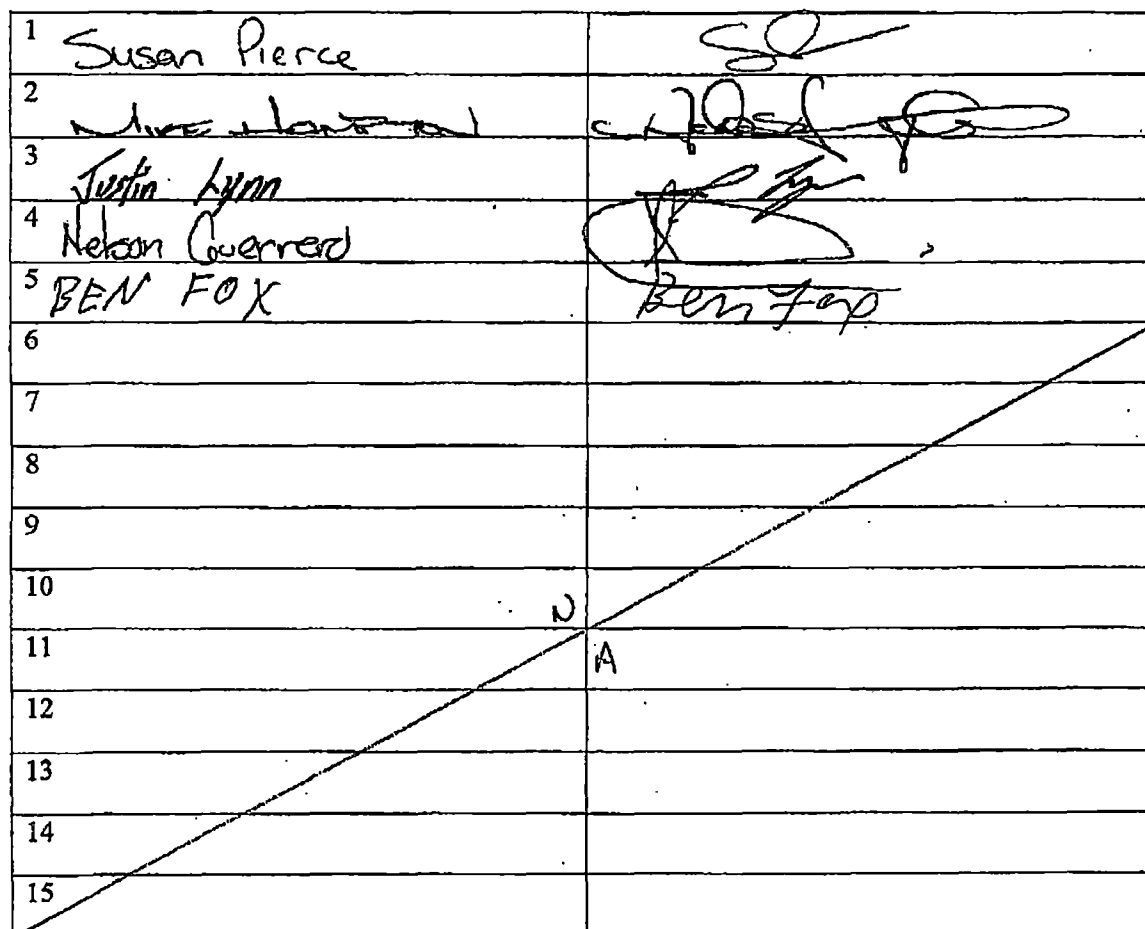 1 Susan Pierce
2 Mike
3 Justin Lynn
4 Nelson Guerrero
5 BEN FOX Ben Fox
6
7
8
9
10
N
11
A
12
13
14
15